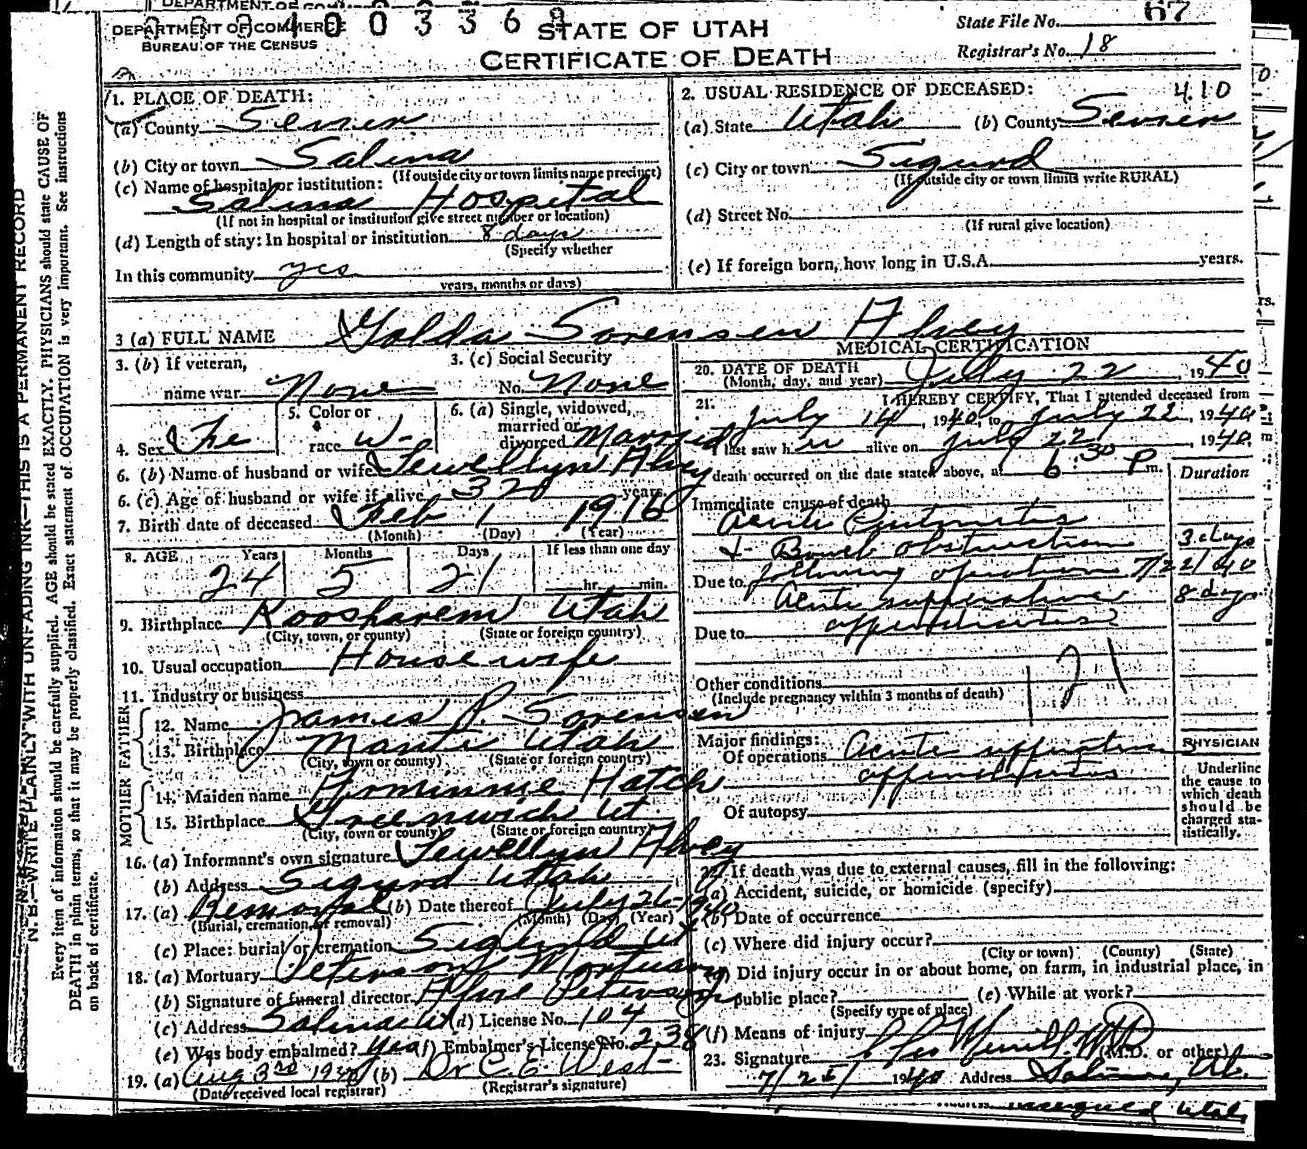 DEPARTMENT OF COMMERCE
BUREAU OF THE CENSUS
4 0 0 3 3 6
STATE OF UTAH
CERTIFICATE OF DEATH
State File No. 67
Registrar's No. 18
1. PLACE OF DEATH:
(a) County Sevier
(b) City or town Salina
(If outside city or town limits name precinct)
(c) Name of hospital or institution:
Salina Hospital
(If not in hospital or institution give street number or location)
(d) Length of stay: In hospital or institution 8 days
(Specify whether
In this community yes
years, months or days)
2. USUAL RESIDENCE OF DECEASED: 410
(a) State Utah (b) County Sevier
(c) City or town Sigurd
(If outside city or town limits write RURAL)
(d) Street No.
(If rural give location)
(e) If foreign born, how long in U.S.A. years.
3 (a) FULL NAME Golda Sorensen Alvey
3. (b) If veteran, name war None
3. (c) Social Security No. None
4. Sex Fe
5. Color or race W-
6. (a) Single, widowed, married or divorced Married
6. (b) Name of husband or wife Lewellyn Alvey
6. (c) Age of husband or wife if alive years
7. Birth date of deceased Feb 1 1916
(Month) (Day) (Year)
8. AGE Years Months Days If less than one day
24 5 21 hr. min.
9. Birthplace Koosharem Utah
(City, town, or county) (State or foreign country)
10. Usual occupation Housewife
11. Industry or business
FATHER
12. Name James P. Sorensen
13. Birthplace Manti Utah
(City, town or county) (State or foreign country)
MOTHER
14. Maiden name Arminnie Hatch
15. Birthplace Greenwich Ut
(City, town or county) (State or foreign country)
16. (a) Informant's own signature Lewellyn Alvey
(b) Address Sigurd Utah
17. (a) Removal (b) Date thereof July 26-1940
(Burial, cremation, or removal) (Month) (Day) (Year)
(c) Place: burial or cremation Sigurd Ut
18. (a) Mortuary Peterson Mortuary
(b) Signature of funeral director Peterson
(c) Address Salina Ut (d) License No. 104
(e) Was body embalmed? yes (f) Embalmer's License No. 238
19. (a) Aug 3rd 1940 (b) Dr C. E. West
(Date received local registrar) (Registrar's signature)
MEDICAL CERTIFICATION
20. DATE OF DEATH
(Month, day, and year) July 22, 1940
21. I HEREBY CERTIFY, That I attended deceased from
July 14, 1940, to July 22, 1940
I last saw her alive on July 22, 1940,
death occurred on the date stated above, at 6:30 P m.
Duration
Immediate cause of death
Acute Peritonitis
+ Bowel obstruction 3 days
Due to following operation 7/22/40
Acute suppurative 8 days
Due to appendicitis
121
Other conditions
(Include pregnancy within 3 months of death)
Major findings:
Of operations Acute suppurative
appendicitis
Of autopsy
PHYSICIAN
Underline the cause to which death should be charged statistically.
22. If death was due to external causes, fill in the following:
(a) Accident, suicide, or homicide (specify)
(b) Date of occurrence
(c) Where did injury occur?
(City or town) (County) (State)
(d) Did injury occur in or about home, on farm, in industrial place, in
public place? (e) While at work?
(Specify type of place)
(f) Means of injury
23. Signature Merrill MD
(M.D. or other)
1940 Address Salina, Ut.
N. B.—WRITE PLAINLY WITH UNFADING INK—THIS IS A PERMANENT RECORD
Every item of information should be carefully supplied. AGE should be stated EXACTLY. PHYSICIANS should state CAUSE OF
DEATH in plain terms, so that it may be properly classified. Exact statement of OCCUPATION is very important. See instructions
on back of certificate.